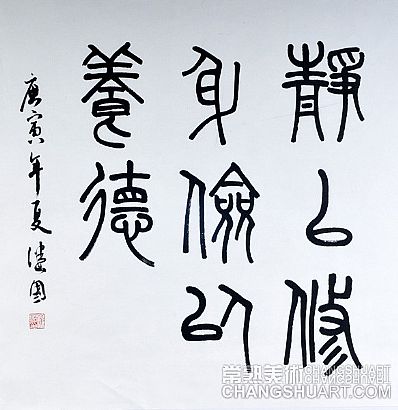 靜以修
身儉以
養德
庚寅年夏
常熟美術
CHANGSHUART.COM